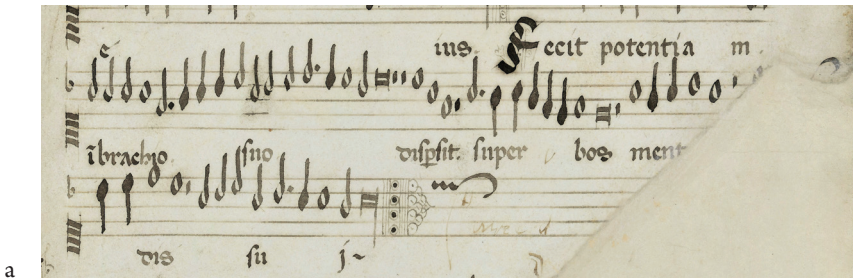 e ius. Fecit potentia m
ī brachio suo disp̄sit. super bos ment
dis su j~
a